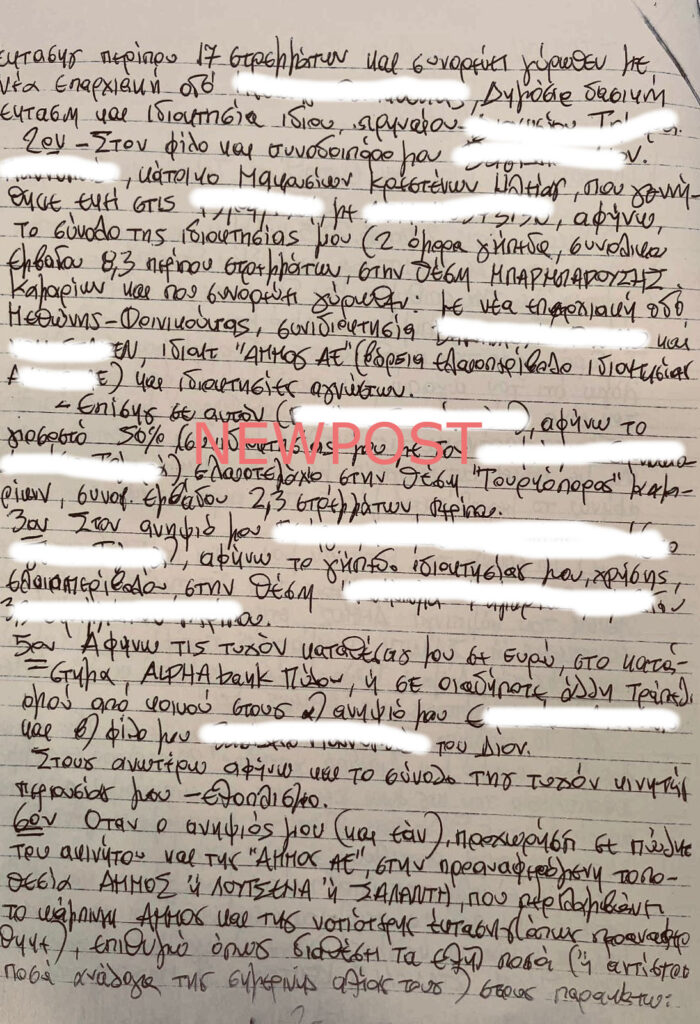 εκτάσης περίπου 17 στρεμμάτων και συνορεύει γύρωθεν με
νέα επαρχιακή οδό , Δημόσια δασική
έκταση και ιδιοκτησία ιδίου,
2ον - Στον φίλο και συνοδοιπόρο μου
, κάτοικο Μακρισίων Κρεστένων Ηλείας, που γεννή-
θηκε εκεί στις με , αφήνω,
το σύνολο της ιδιοκτησίας μου (2 όμορα γήπεδα, συνολικού
εμβαδού 8,3 περίπου στρεμμάτων, στην θέση ΜΠΑΡΜΠΑΡΟΥΣΗΣ
Καμαρίων και που συνορεύει γύρωθεν: με νέα επαρχιακή οδό
Μεθώνης-Φοινικούντας, συνιδιοκτησία και
ΕΝ, ιδιοκτ "ΑΜΜΟΣ ΑΕ" (βόρεια ελαιοπερίβολο ιδιοκτησίας
) και ιδιοκτησίες αγνώστων.
- Επίσης σε αυτόν ( ), αφήνω το
ποσοστό 50% (συνιδιοκτησίας μου με τον
), ελαιοτεμάχιο στην θέση "Τουρκόπορος" Καμα-
ρίων, συνολ. εμβαδού 2,3 στρεμμάτων, περίπου.
NEWPOST
3ον Στον ανηψιό μου
), αφήνω το γήπεδο ιδιοκτησίας μου, χρήσης,
ελαιοπερίβολο, στην θέση
5ον Αφήνω τις τυχόν καταθέσεις μου σε ευρώ, στο κατά-
στημα, ALPHA bank Πύλου, ή σε οιαδήποτε άλλη τράπεζα
ομού από κοινού στους α) ανηψιό μου
και β) φίλο μου του Διον.
Στους ανωτέρω αφήνω και το σύνολο της τυχόν κινητής
περιουσίας μου - εξοπλισμό.
6ον Όταν ο ανηψιός μου (και εάν), προχωρήσει σε πώληση
του ακινήτου και της "ΑΜΜΟΣ ΑΕ", στην προαναφερόμενη τοπο-
θεσία ΑΜΜΟΣ ή ΛΟΥΤΣΕΝΑ ή ΣΑΛΑΝΤΗ, που περιλαμβάνει
το κάμπινγκ ΑΜΜΟΣ και της νοτιότερης έκτασης (όπως προαναφέρ
θηκε), επιθυμώ όπως διαθέσει τα εξής ποσά (ή αντίστοι
ποσά ανάλογα της σημερινής αξίας τους) στους παρακάτω: